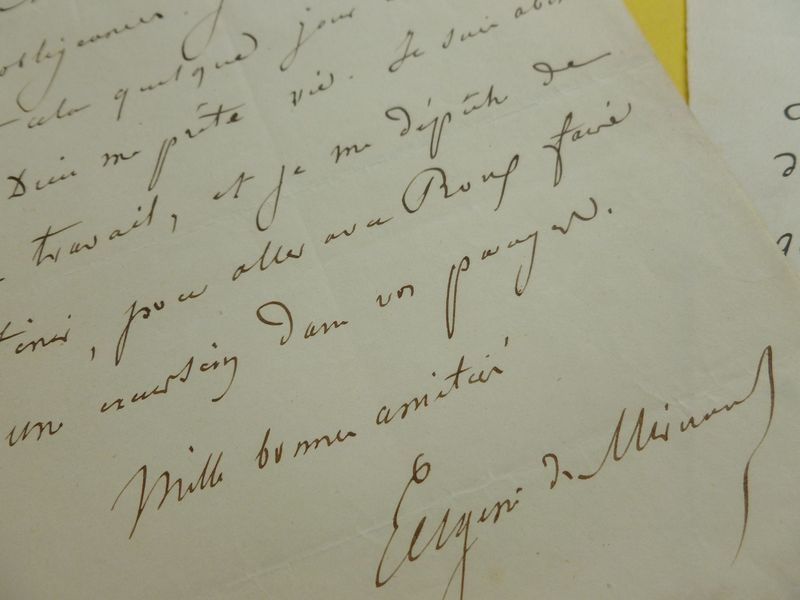 obligeance
cela quelque jour
Dieu me prête vie. Je suis
travail, et je me dépêche de
pour aller avec Roux faire
une excursion dans vos parages.
Mille bonnes amitiés
Eugène de